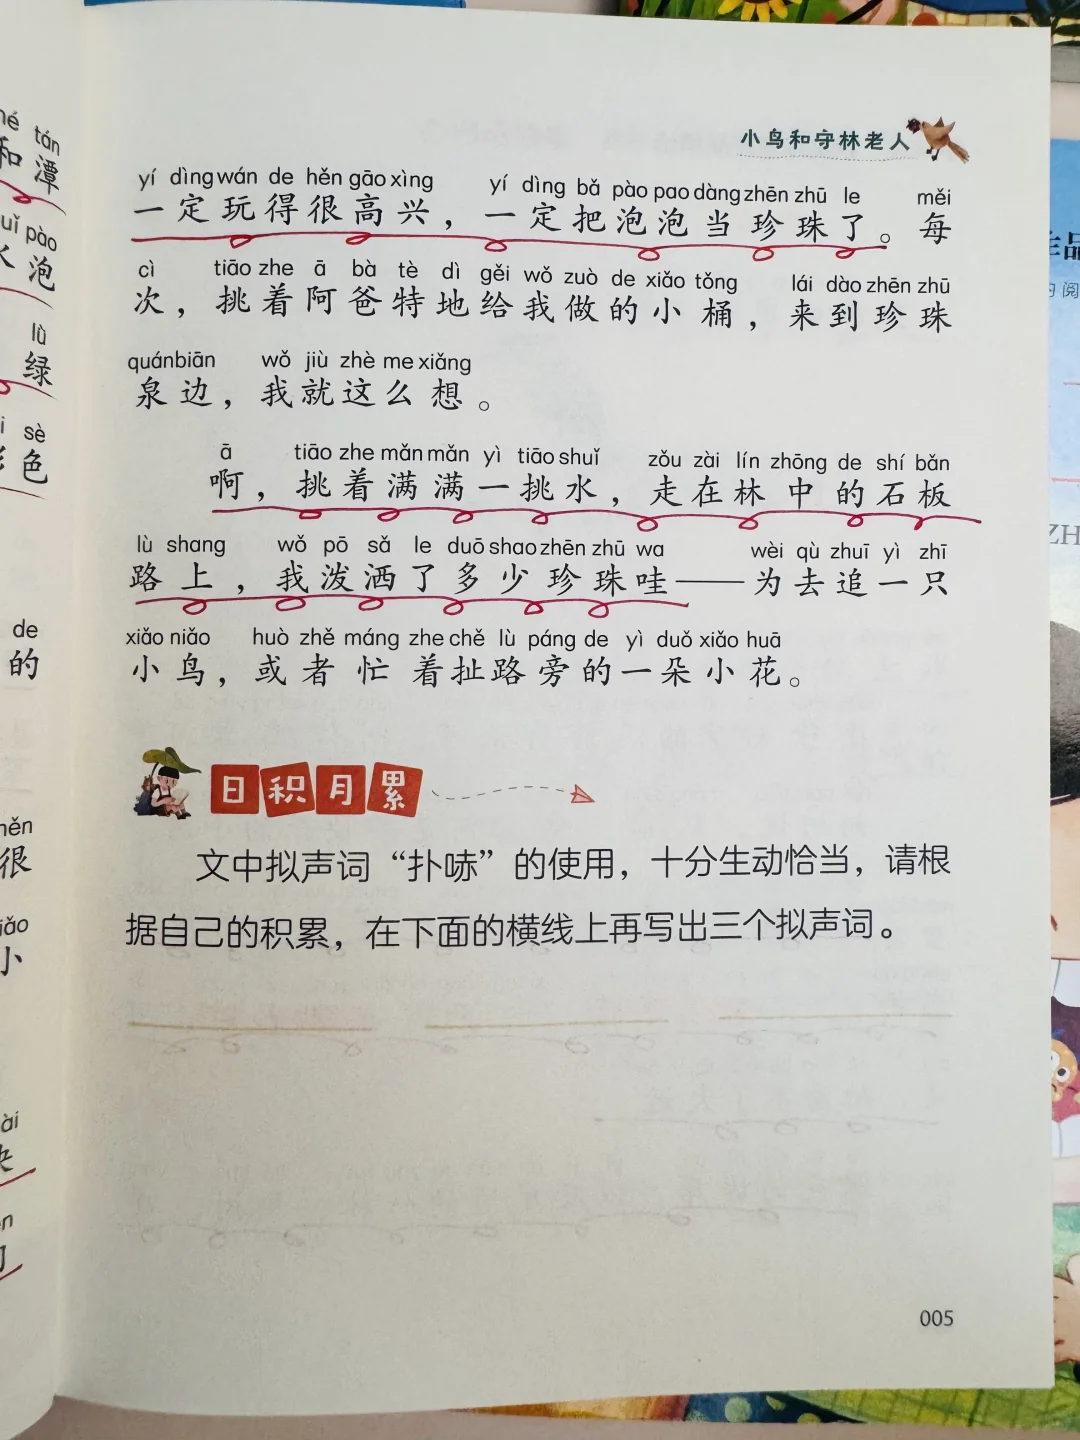 小鸟和守林老人
yí dìng wán de hěn gāo xìng yí dìng bǎ pào pao dàng zhēn zhū le měi
一定玩得很高兴，一定把泡泡当珍珠了。每
cì tiāo zhe ā bà tè dì gěi wǒ zuò de xiǎo tǒng lái dào zhēn zhū
次，挑着阿爸特地给我做的小桶，来到珍珠
quán biān wǒ jiù zhè me xiǎng
泉边，我就这么想。
ā tiāo zhe mǎn mǎn yì tiāo shuǐ zǒu zài lín zhōng de shí bǎn
啊，挑着满满一挑水，走在林中的石板
lù shang wǒ pō sǎ le duō shao zhēn zhū wa wèi qù zhuī yì zhī
路上，我泼洒了多少珍珠哇——为去追一只
xiǎo niǎo huò zhě máng zhe chě lù páng de yì duǒ xiǎo huā
小鸟，或者忙着扯路旁的一朵小花。
日积月累
文中拟声词“扑哧”的使用，十分生动恰当，请根
据自己的积累，在下面的横线上再写出三个拟声词。
005
tán
和潭
uǐ pào
泡
lǜ
绿
sè
色
de
的
hěn
很
iǎo
小